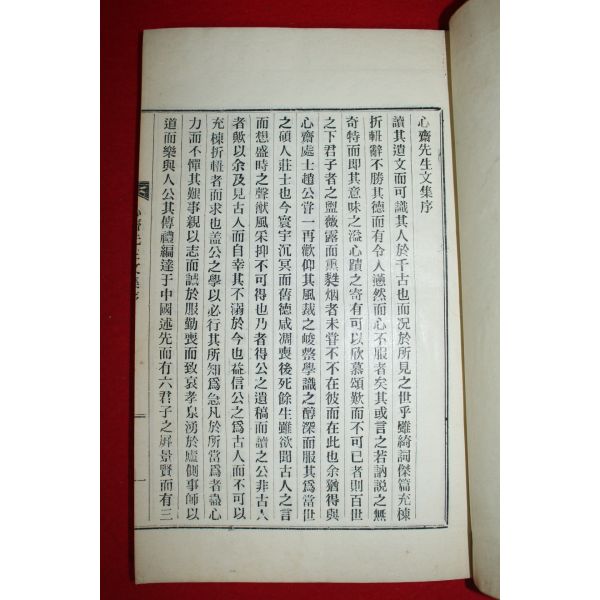 心齋先生文集序
讀其遺文而可識其人於千古也而況於所見之世乎雖綺詞傑篇充棟
折輯辭不勝其德而有令人邈然而心不服者矣其或言之若訥說之無
奇特而即其意味之溢心蹟之寄有可以欣慕頌歎而不可已者則百世
之下君子者之盥薇露而熏烟者未甞不不在彼而在此也余猶得與
心齋處士趙公甞一再歡仰其風裁之峻整學識之醇深而服其爲當世
之碩人莊士也今寰宇沉冥而舊德咸凋喪後死餘生雖欲聞古人之言
而想盛時之聲猷風采抑不可得也乃者得公之遺稿而讀之公非古人
者歟以余及見古人而自幸其不溺於今也益信公之爲古人而不可以
充棟折輯者而求也盖公之學以必行其所知爲急凡於所當爲者盡心
力而不憚其艱事親以志而誠於服勤喪而致哀孝泉湧於廬側事師以
道而樂與人公其傳禮編達于中國述先而有六君子之屛景賢而有三
心齋先生文集序
一